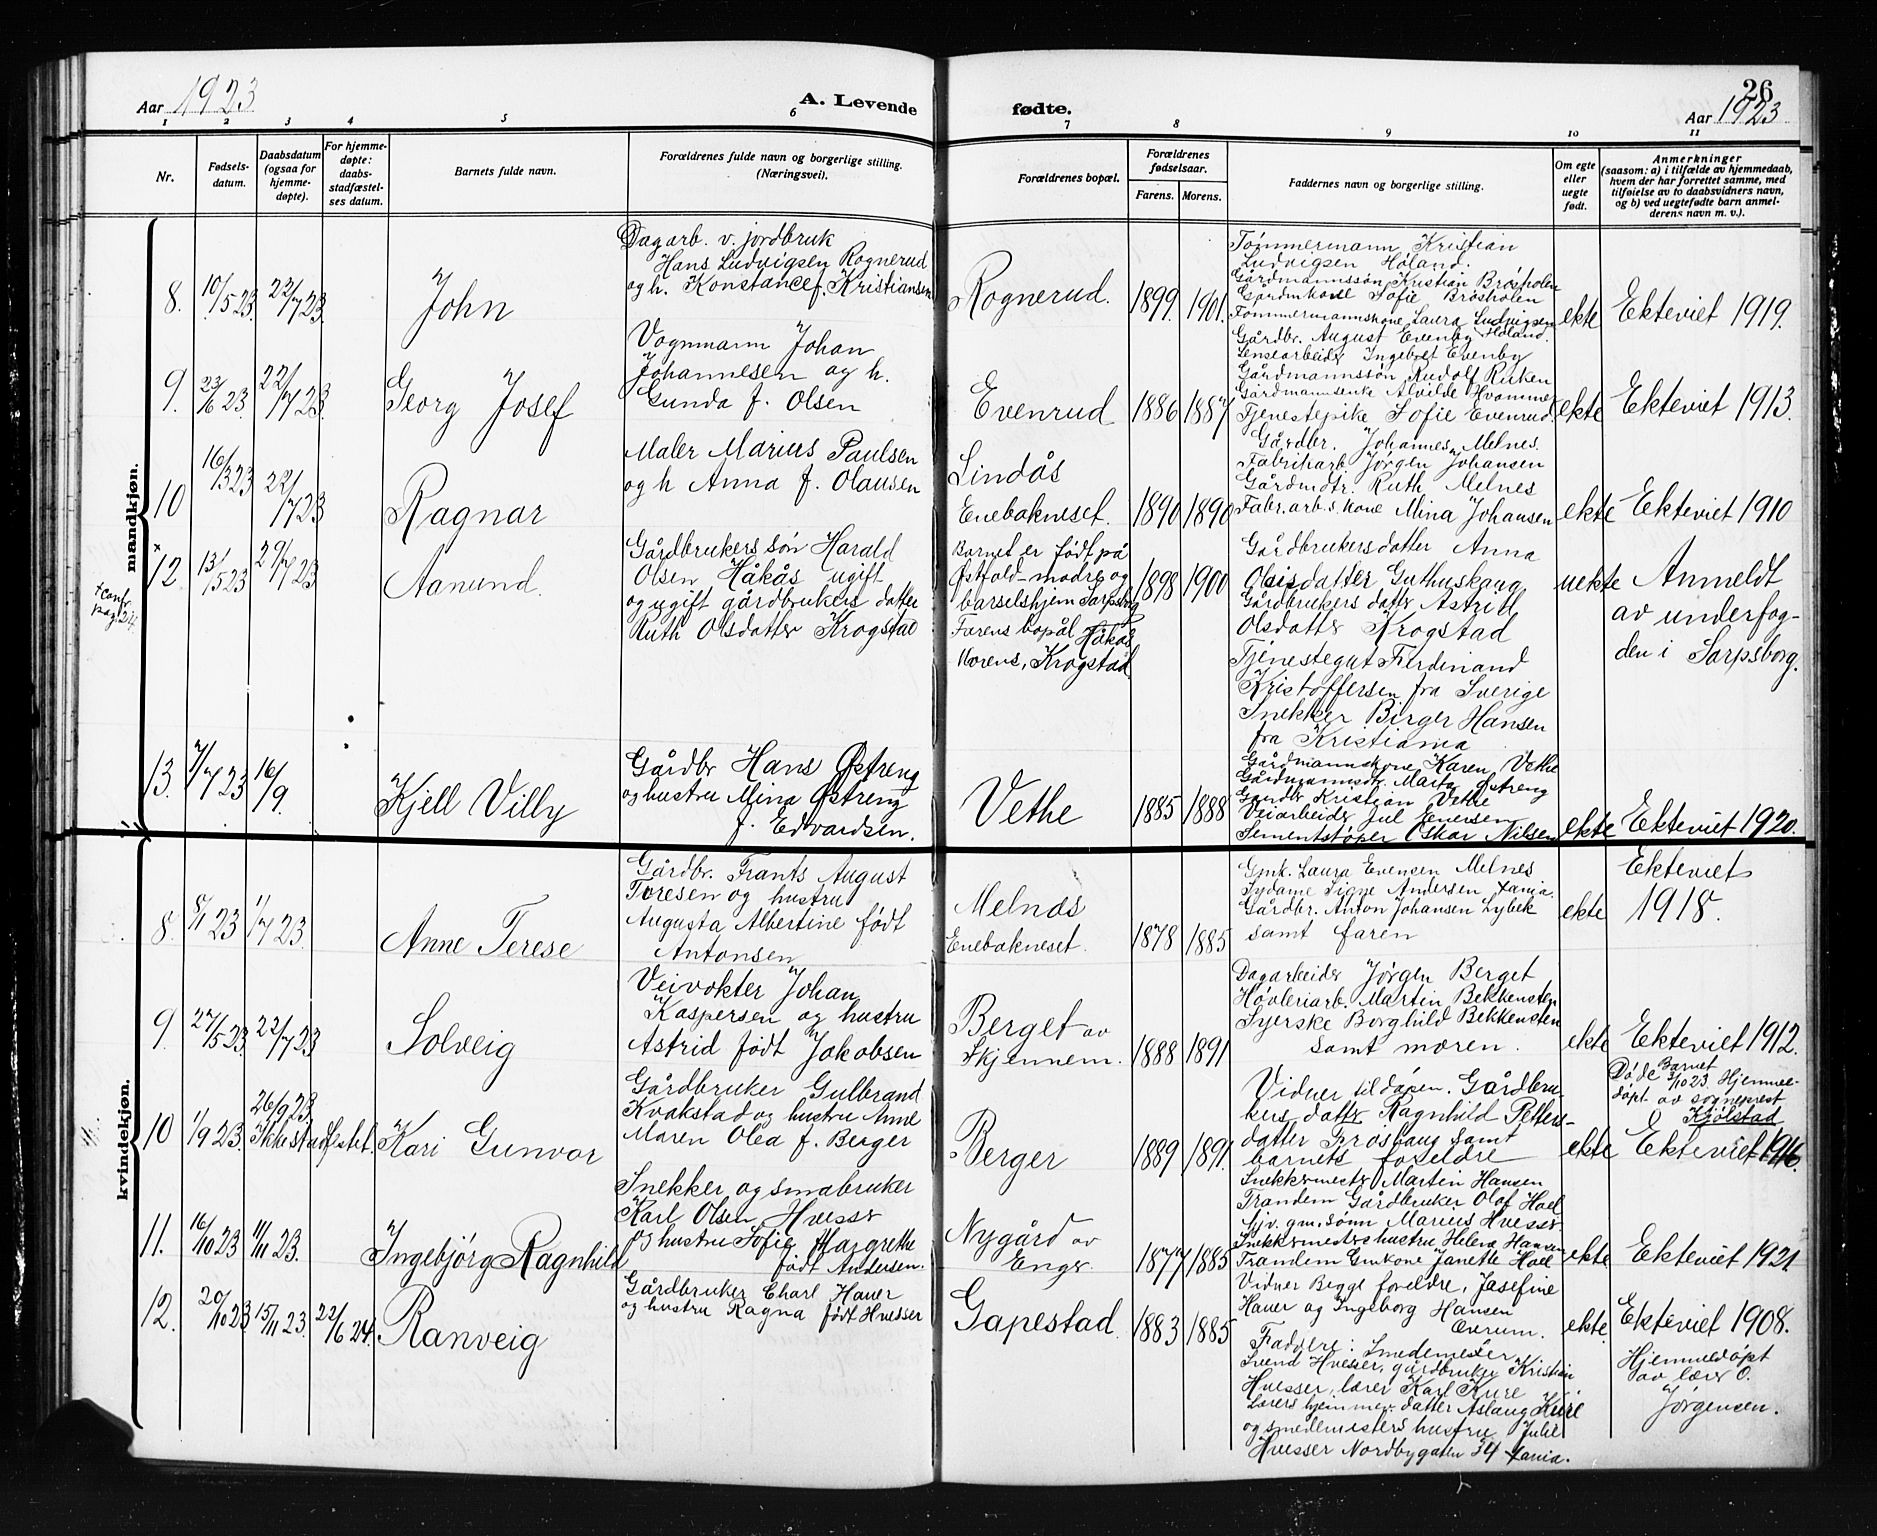 Aar 1923
A. Levende
fødte.
26
Aar 1923
1 2 3 4 5 6 7 8 9 10 11
Nr.
Fødsels-
datum.
Daabsdatum
(ogsaa for
hjemme-
døpte).
For hjemme-
døpte:
daabs-
stadfæstel-
ses datum.
Barnets fulde navn.
Forældrenes fulde navn og borgerlige stilling.
(Næringsvei).
Forældrenes bopæl.
Forældrenes
fødselsaar.
Farens. Morens.
Faddernes navn og borgerlige stilling.
Om egte
eller
uegte
født.
Anmerkninger
(saasom: a) i tilfælde av hjemmedaab,
hvem der har forrettet samme, med
tilføielse av to daabsvidners navn,
og b) ved uegtefødte barn anmel-
derens navn m. v.).
mandkjøn.
8. 10/5 23. 22/7 23. John
Dagarb. v. jordbruk
Hans Ludvigsen Rognerud
og h. Konstance f. Kristiansen
Rognerud. 1899. 1901.
Tømmermann Kristian
Ludvigsen Høland.
Gårdmannssøn Kristian Brøsholen
Gårdmkone Sofie Brøsholen
Tømmermannskone Laura Ludvigsen
Høland.
ekte Ekteviet 1919.
9. 23/6 23. 22/7 23 Georg Josef
Vognmann Johan
Johannesen og h.
Gunda f. Olsen
Evenrud 1886 1887
Gårdbr. August Evenby
Lensearbeider Ingebret Evenby
Gårdmannssøn Rudolf Rirken
Gårdmannsenke Alvilde Hvammer
Tjenestepike Sofie Evenrud.
ekte Ekteviet 1913.
10 16/3 23 22/7 23 Ragnar
Maler Marius Paulsen
og h Anna f. Olausen
Lindås
Enebakneset. 1890 1890
Gårdbr. Johannes Melnes.
Fabrikarb Jørgen Johansen
Gårdmdtr. Ruth Melnes
Fabr.arb.s kone Mina Johansen
ekte Ekteviet 1910
x
12 13/5 23 29/7 23 Aamund.
+ confr
pag. 24.
Gårdbrukers søn Harald
Olsen Håkås ugift
og ugift gårdbrukers datter
Ruth Olsdatter Krogstad
Barnet er født på
Østfold mødre og
barselshjem Sarpsborg
Farens bopål Håkås
Morens, Krogstad.
1898 1900
Gårdbrukersdatter Anna
Olsisdatter Guthuskaug
Gårdbrukers datter Astrid
Olsdatter Krogstad
Tjenestegut Ferdinand
Kristoffersen fra Sverige
Snekker Birger Hansen
fra Kristiania
uekte Anmeldt
av underfog-
den i Sarpsborg.
13. 7/7 23 16/9. Kjell Villy
Gårdbr Hans Østreng
og hustru Mina Østreng
f. Edvardsen.
Vethe 1885 1888
Gårdmannskone Karen Vethe
Gårdmannsdtr. Marta Østreng
Gaardbr Kristian Vethe
Veiarbeider Jul Enersen
Sementstøper Oskar Nilsen
ekte Ekteviet 1920.
kvindekjøn.
8. 8/1 23 1/7 23. Anne Terese
Gårdbr. Frants August
Toresen og hustru
Augusta Albertine født
Antonsen
Melnæs
Enebakneset. 1878 1885
Gmk. Laura Evensen Melnes
Sydame Signe Andersen Xania.
Gårdbr. Anton Johansen Lybek
samt faren
ekte Ekteviet
1918.
9. 27/5 23. 22/7 23 Solveig
Veivokter Johan
Kaspersen og hustru
Astrid født Jakobsen
Berget av
Skjennem. 1888 1891
Dagarbeider Jørgen Berget
Høvleriarb. Martin Bekkensten
Syerske Borghild Bekkensten
samt moren.
ekte Ekteviet 1912.
10 1/9 23. 26/9 23. Ikke stadfestet. Kari Gunvor
Gårdbruker Gulbrand
Kvakstad og hustru Anne
Maren Olea f. Berger
Berger 1889 1891.
Vidner til dåpen. Gårdbru-
kers datter Ragnhild Peters-
datter Frøshaug samt
barnets foreldre
ekte
Døde Barnet
3/10 23. Hjemme-
døpt av sogneprest
O Kjølstad
Ekteviet 1916.
11. 16/10 23 11/11 23. Ingebjörg Ragnhild
Snekker og småbruker
Karl Olsen Huesser
og hustru Sofie Margrethe
født Andersen.
Nygård av
Enger 1877 1885
Snekkermester Martin Hansen
Trandem Gårdbruker Olof Hoel
Sjv. gm.sönn Marius Huesser
Snekkermestershustru Helene Hansen
Trandem Gmkone Janette Hoel
ekte Ekteviet 1921
12. 20/10 23 15/11 23. 22/6 24. Ranveig
Gårdbruker Charl Hauer
og hustru Ragna født Huesser
Gapestad. 1883 1885
Vidner Begge foreldre, Josefine
Hauer og Ingeborg Hansen
Ekerum.
Faddere: Smedemester
Svend Huesser, gårdbruker Kristian
Huesser, lærer Karl Kure
Lærers hjemmev. datter Aslaug Kure
og smedemesters hustru Julie
Huesser Nordbygaten 34 Xania.
ekte. Ekteviet 1908.
Hjemmedöpt
av lærer O.
Jørgensen.